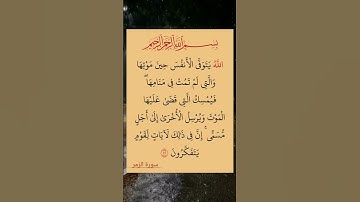 بسم الله الرحمن الرحيم
اللَّهُ يَتَوَفَّى الْأَنفُسَ حِينَ مَوْتِهَا
وَالَّتِي لَمْ تَمُتْ فِي مَنَامِهَا ۖ
فَيُمْسِكُ الَّتِي قَضَىٰ عَلَيْهَا
الْمَوْتَ وَيُرْسِلُ الْأُخْرَىٰ إِلَىٰ أَجَلٍ
مُّسَمًّى ۚ إِنَّ فِي ذَٰلِكَ لَآيَاتٍ لِّقَوْمٍ
يَتَفَكَّرُونَ
سورة الزمر